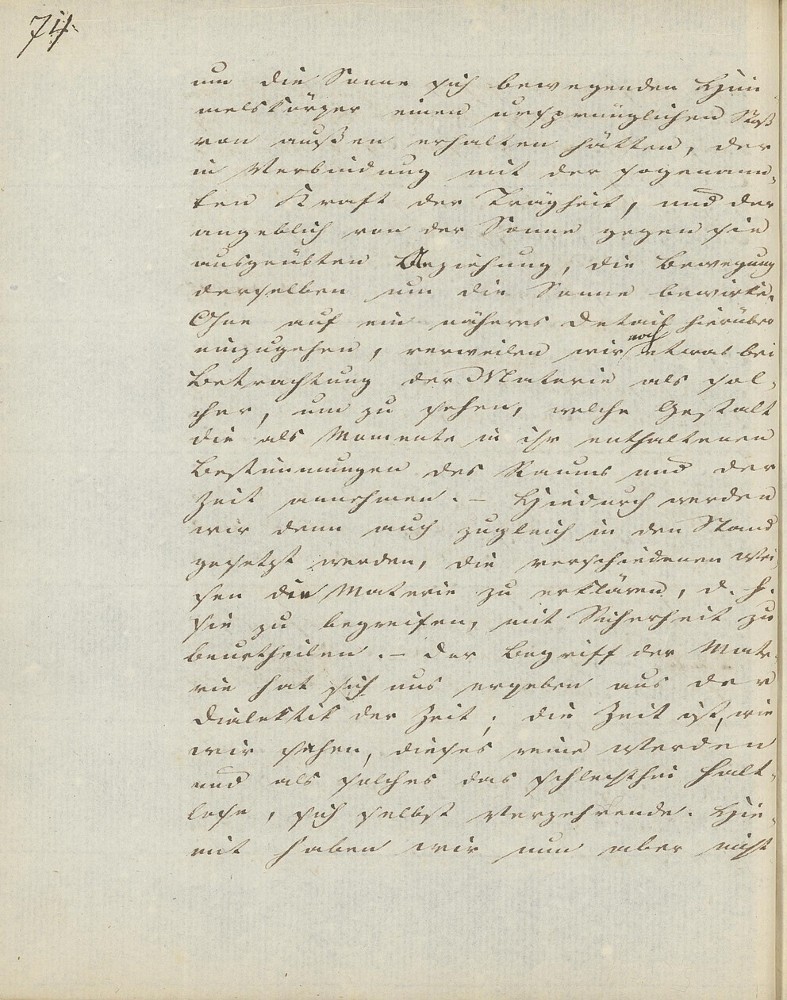 74.
um die Sonne sich bewegenden Him
melskörper einen ursprünglichen Stoß
von außen erhalten hätten, der
in Verbindung mit der sogenann-
ten Kraft der Trägheit, und der
angeblich von der Sonne gegen sie
ausgeübten Anziehung, die Bewegung
derselben um die Sonne bewirke.
Ohne auf ein näheres Detail hierüber
einzugehen, verweilen wir noch etwas bei
Betrachtung der Materie als sol-
cher, um zu sehen, welche Gestalt
die als Momente in ihr enthaltenen
Bestimmungen des Raums und der
Zeit annehmen. – Hiedurch werden
wir denn auch zugleich in den Stand
gesetzt werden, die verschiedenen Wei
sen die Materie zu erklären, d. h.
sie zu begreifen, mit Sicherheit zu
beurtheilen. – Der Begriff der Mate-
rie hat sich uns ergeben aus der
Dialektik der Zeit; die Zeit ist, wie
wir sahen, dieses reine Werden
und als solches das schlechthin Halt-
lose, sich selbst Verzehrende. Hie-
mit haben wir nun aber nicht